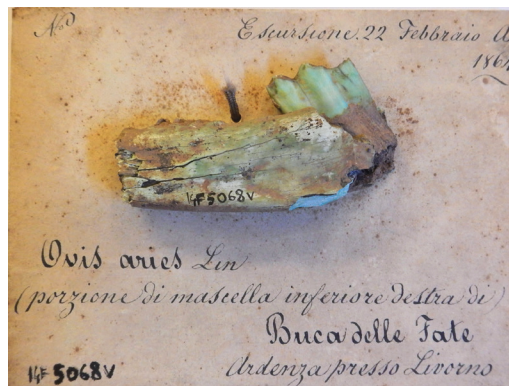 No
Escursione. 22 Febbraio
IGF 5068V
Ovis aries Lin
(porzione di mascella inferiore destra di)
Buca delle Fate
IGF 5068V
Ardenza presso Livorno